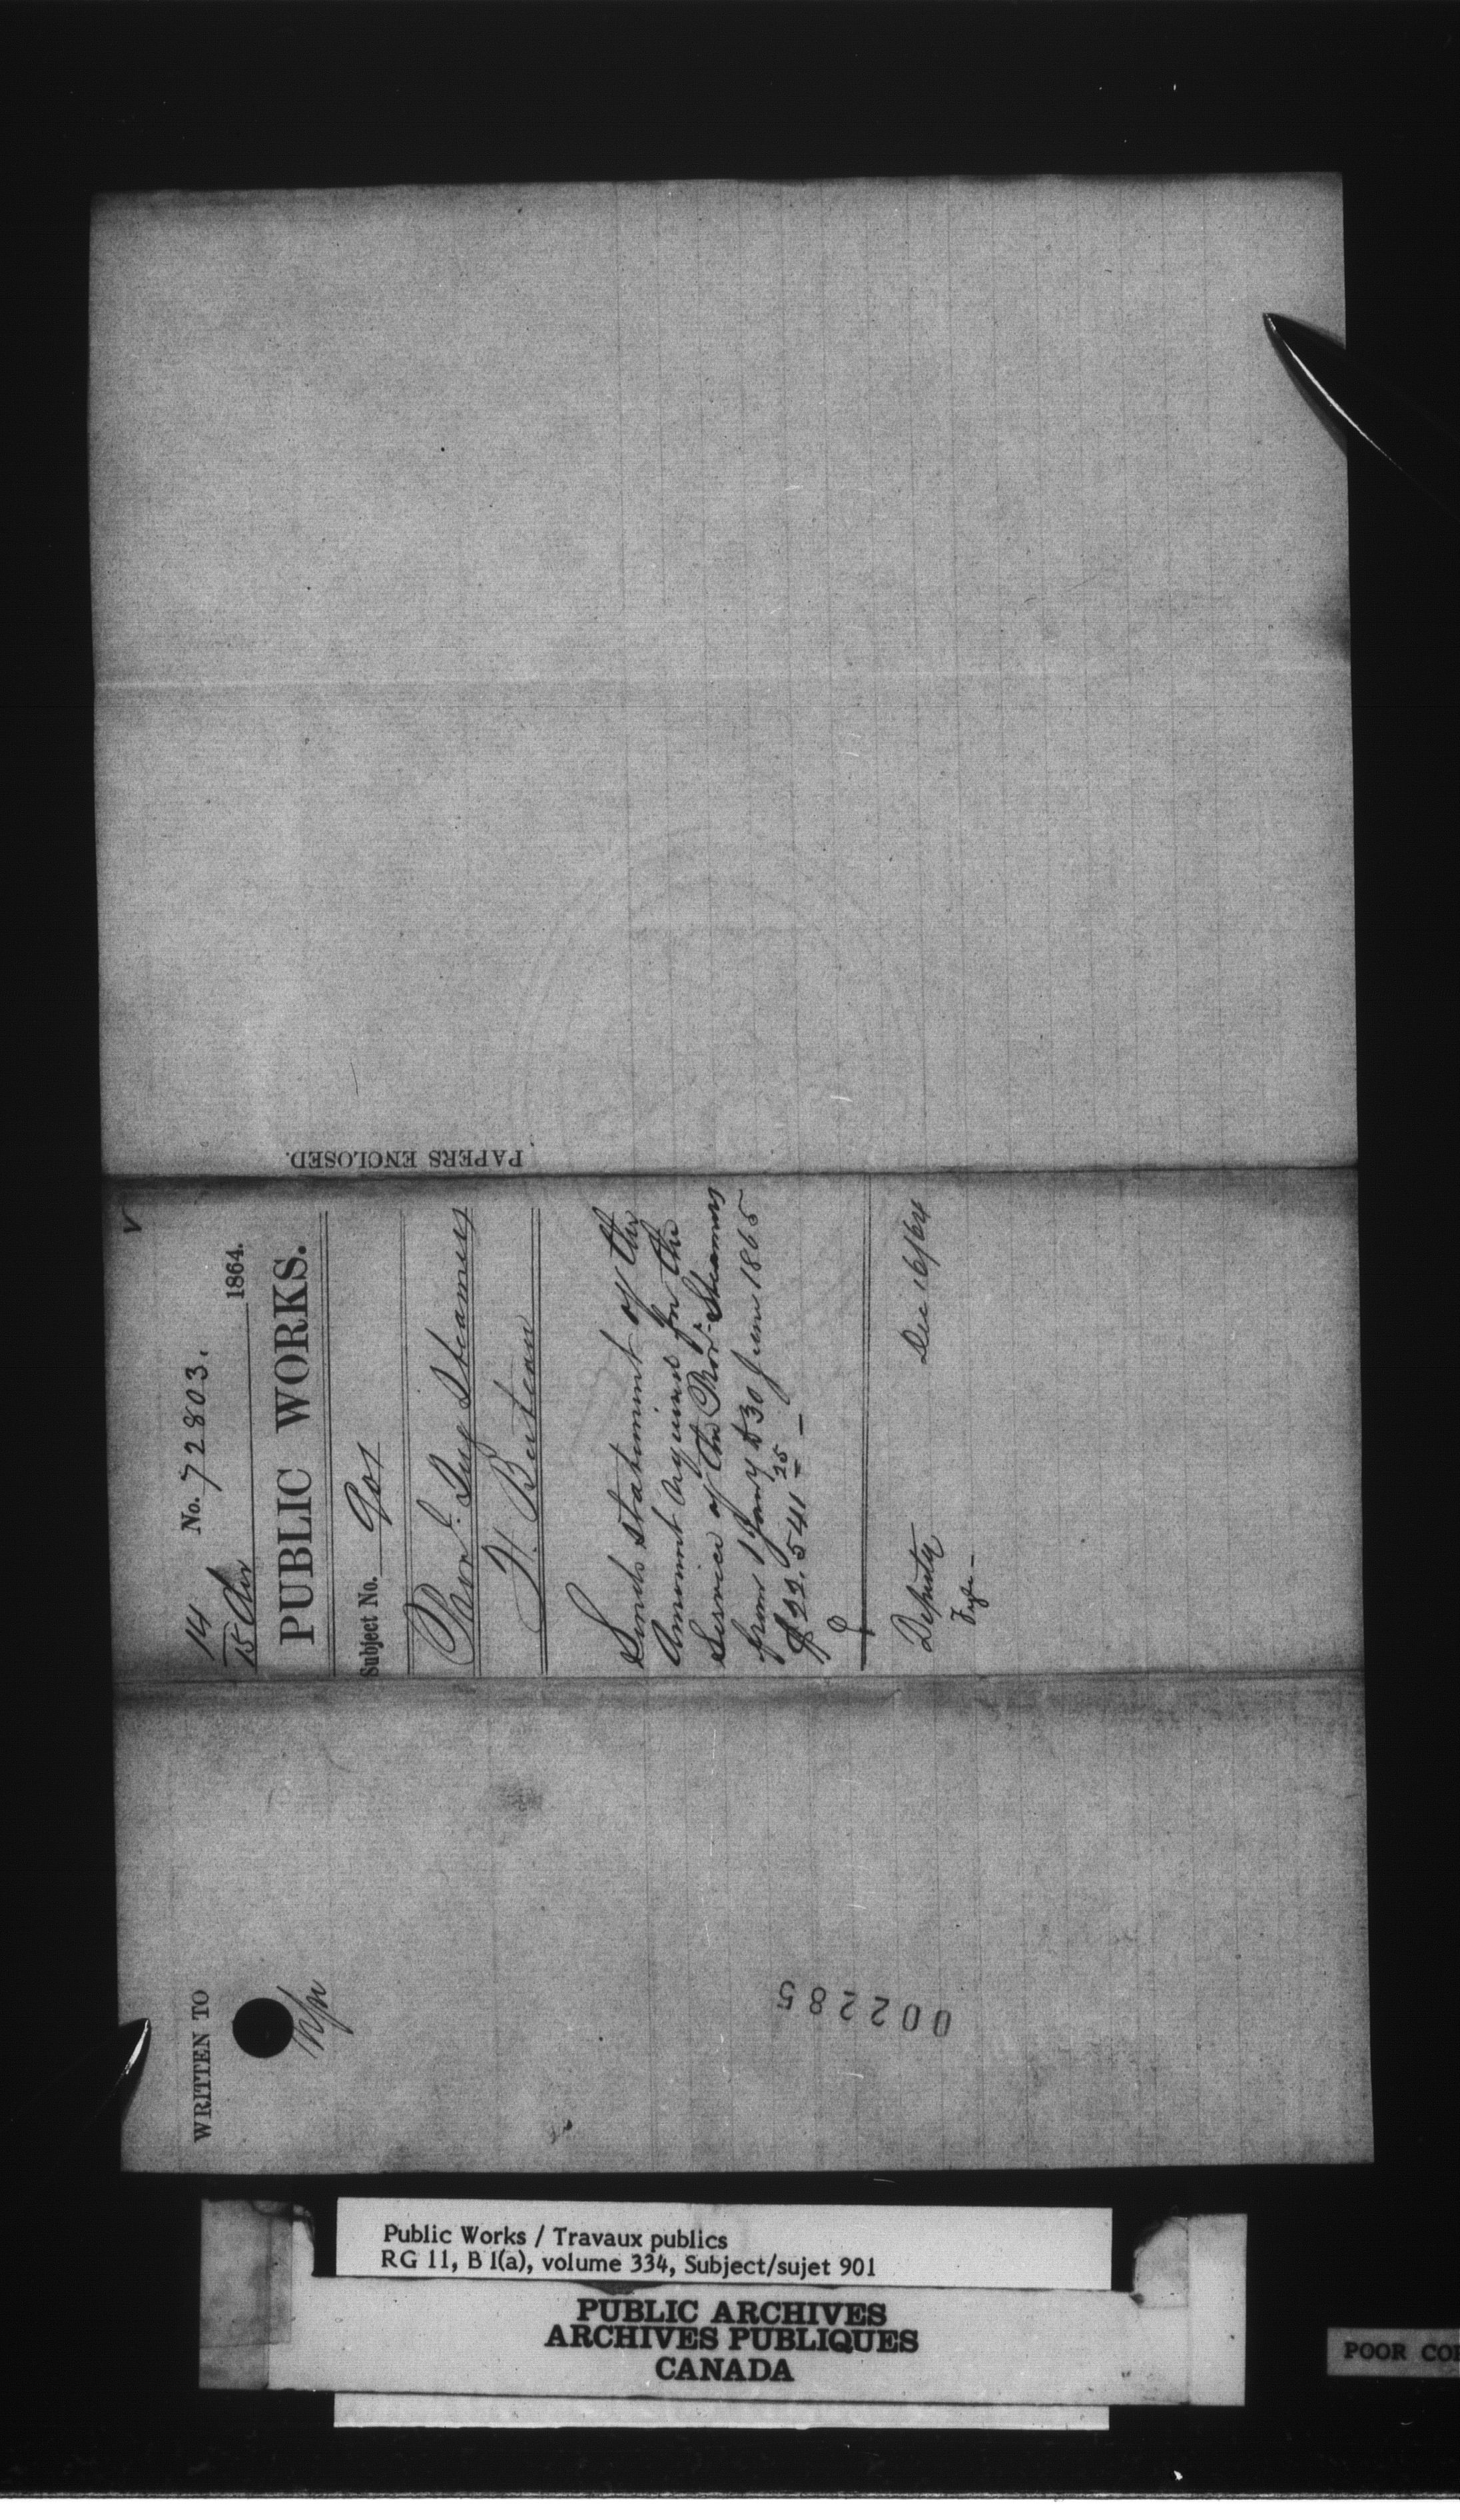 14
15 Dec
No. 72803.
1864.
PUBLIC WORKS.
Subject No. 901
Prov.l Tug Steamers
F. Buteau
Sends statement of the
Amount required for the
Service of the Prov.l Steamers
from 1 Jan'y to 30 June 1865
$22.541 25
Deputy
Dec 16/64
PAPERS ENCLOSED.
WRITTEN TO
002285
Public Works / Travaux publics
RG 11, B 1(a), volume 334, Subject/sujet 901
PUBLIC ARCHIVES
ARCHIVES PUBLIQUES
CANADA
POOR CO